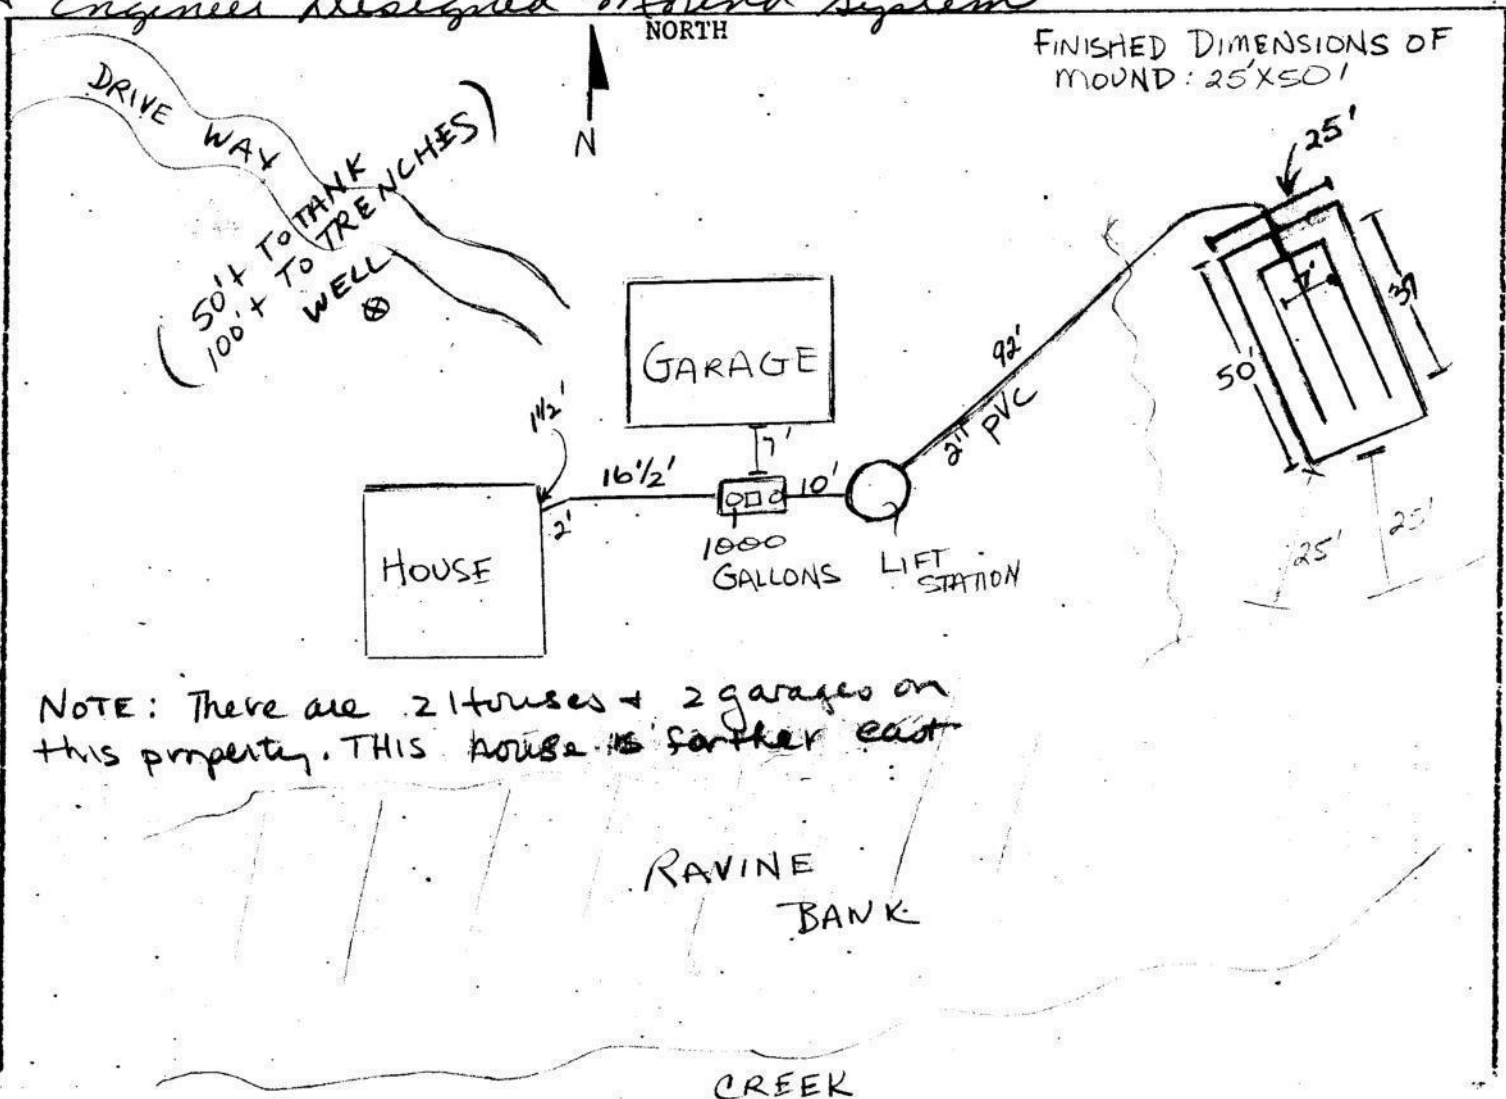 Engineer Designed Mound System
NORTH
N
FINISHED DIMENSIONS OF
MOUND: 25'X50'
25'
DRIVE WAY
(50'+ TO TANK
100'+ TO TRENCHES)
WELL
7'
37
50'
GARAGE
92'
2" PVC
1 1/2'
7'
16 1/2'
10'
2'
HOUSE
1000
GALLONS
LIFT
STATION
25'
25'
NOTE: There are 2 Houses + 2 garages on
this property. THIS house is farther east
RAVINE
BANK
CREEK